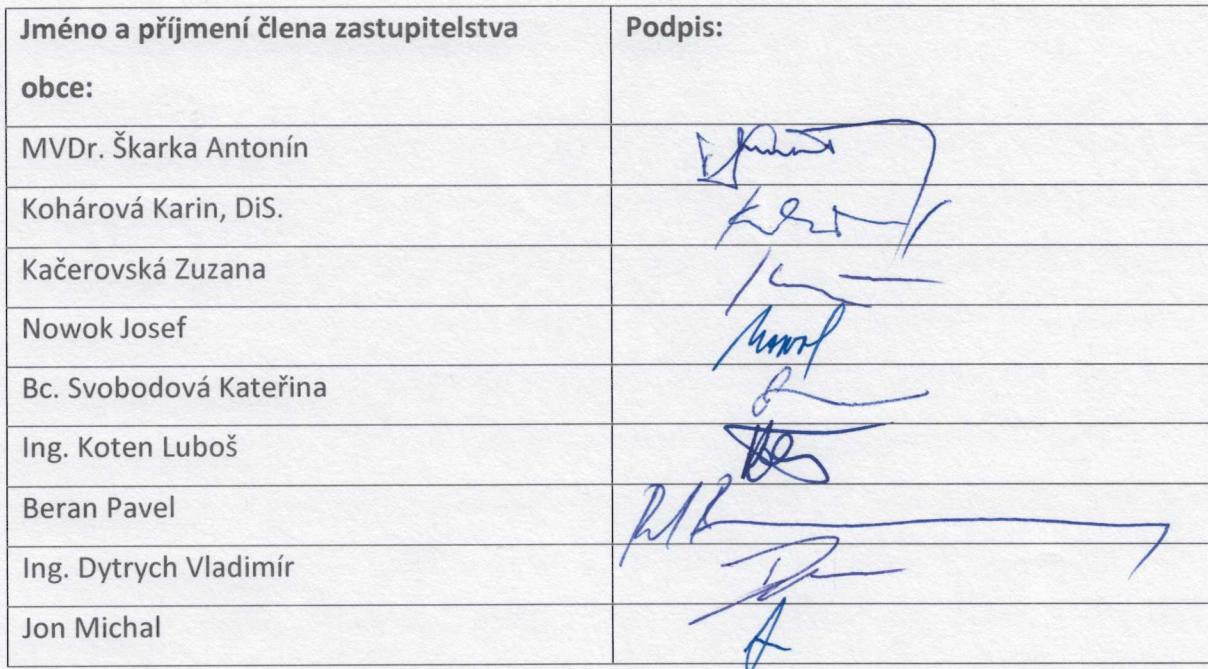 Jméno a příjmení člena zastupitelstva
obce:
Podpis:
MVDr. Škarka Antonín
Kohárová Karin, DiS.
Kačerovská Zuzana
Nowok Josef
Bc. Svobodová Kateřina
Ing. Koten Luboš
Beran Pavel
Ing. Dytrych Vladimír
Jon Michal